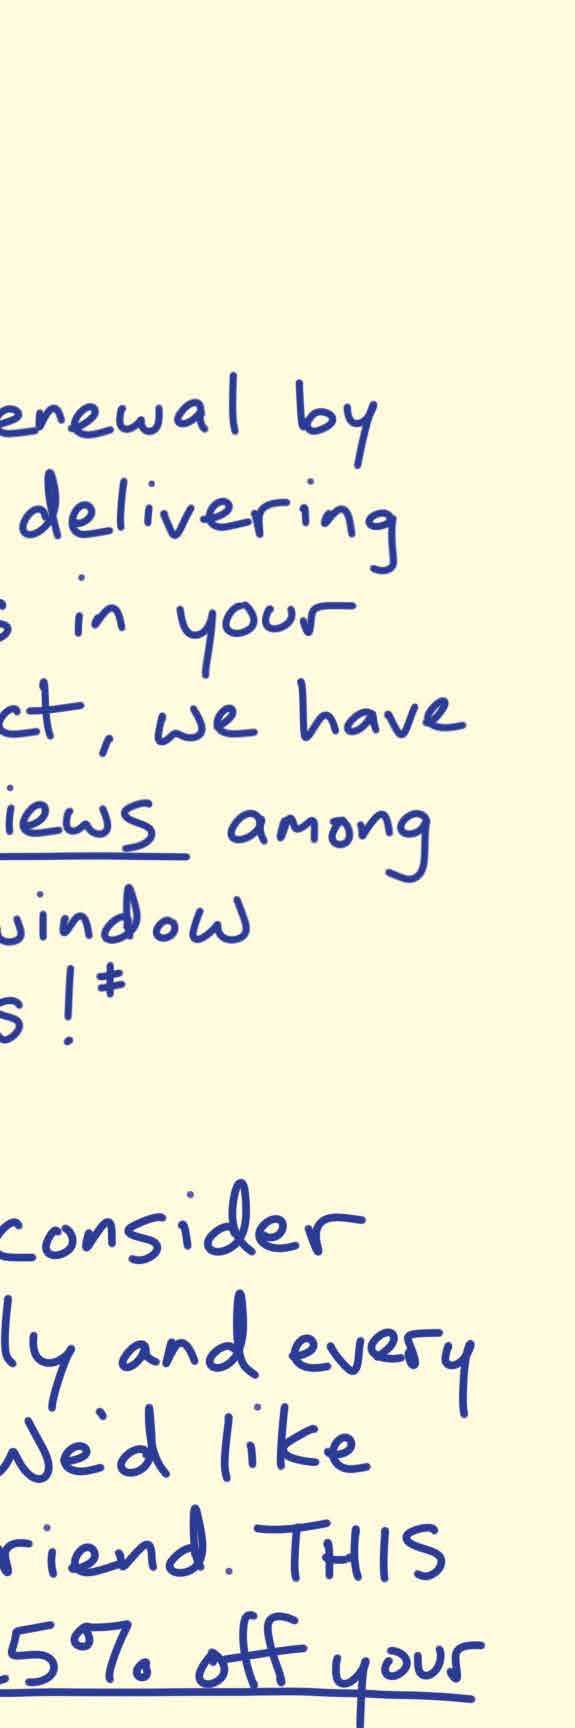 enewal by
delivering
s in your
ct, we have
iews among
window
s!‡
consider
ly and every
We'd like
riend. THIS
5% off your